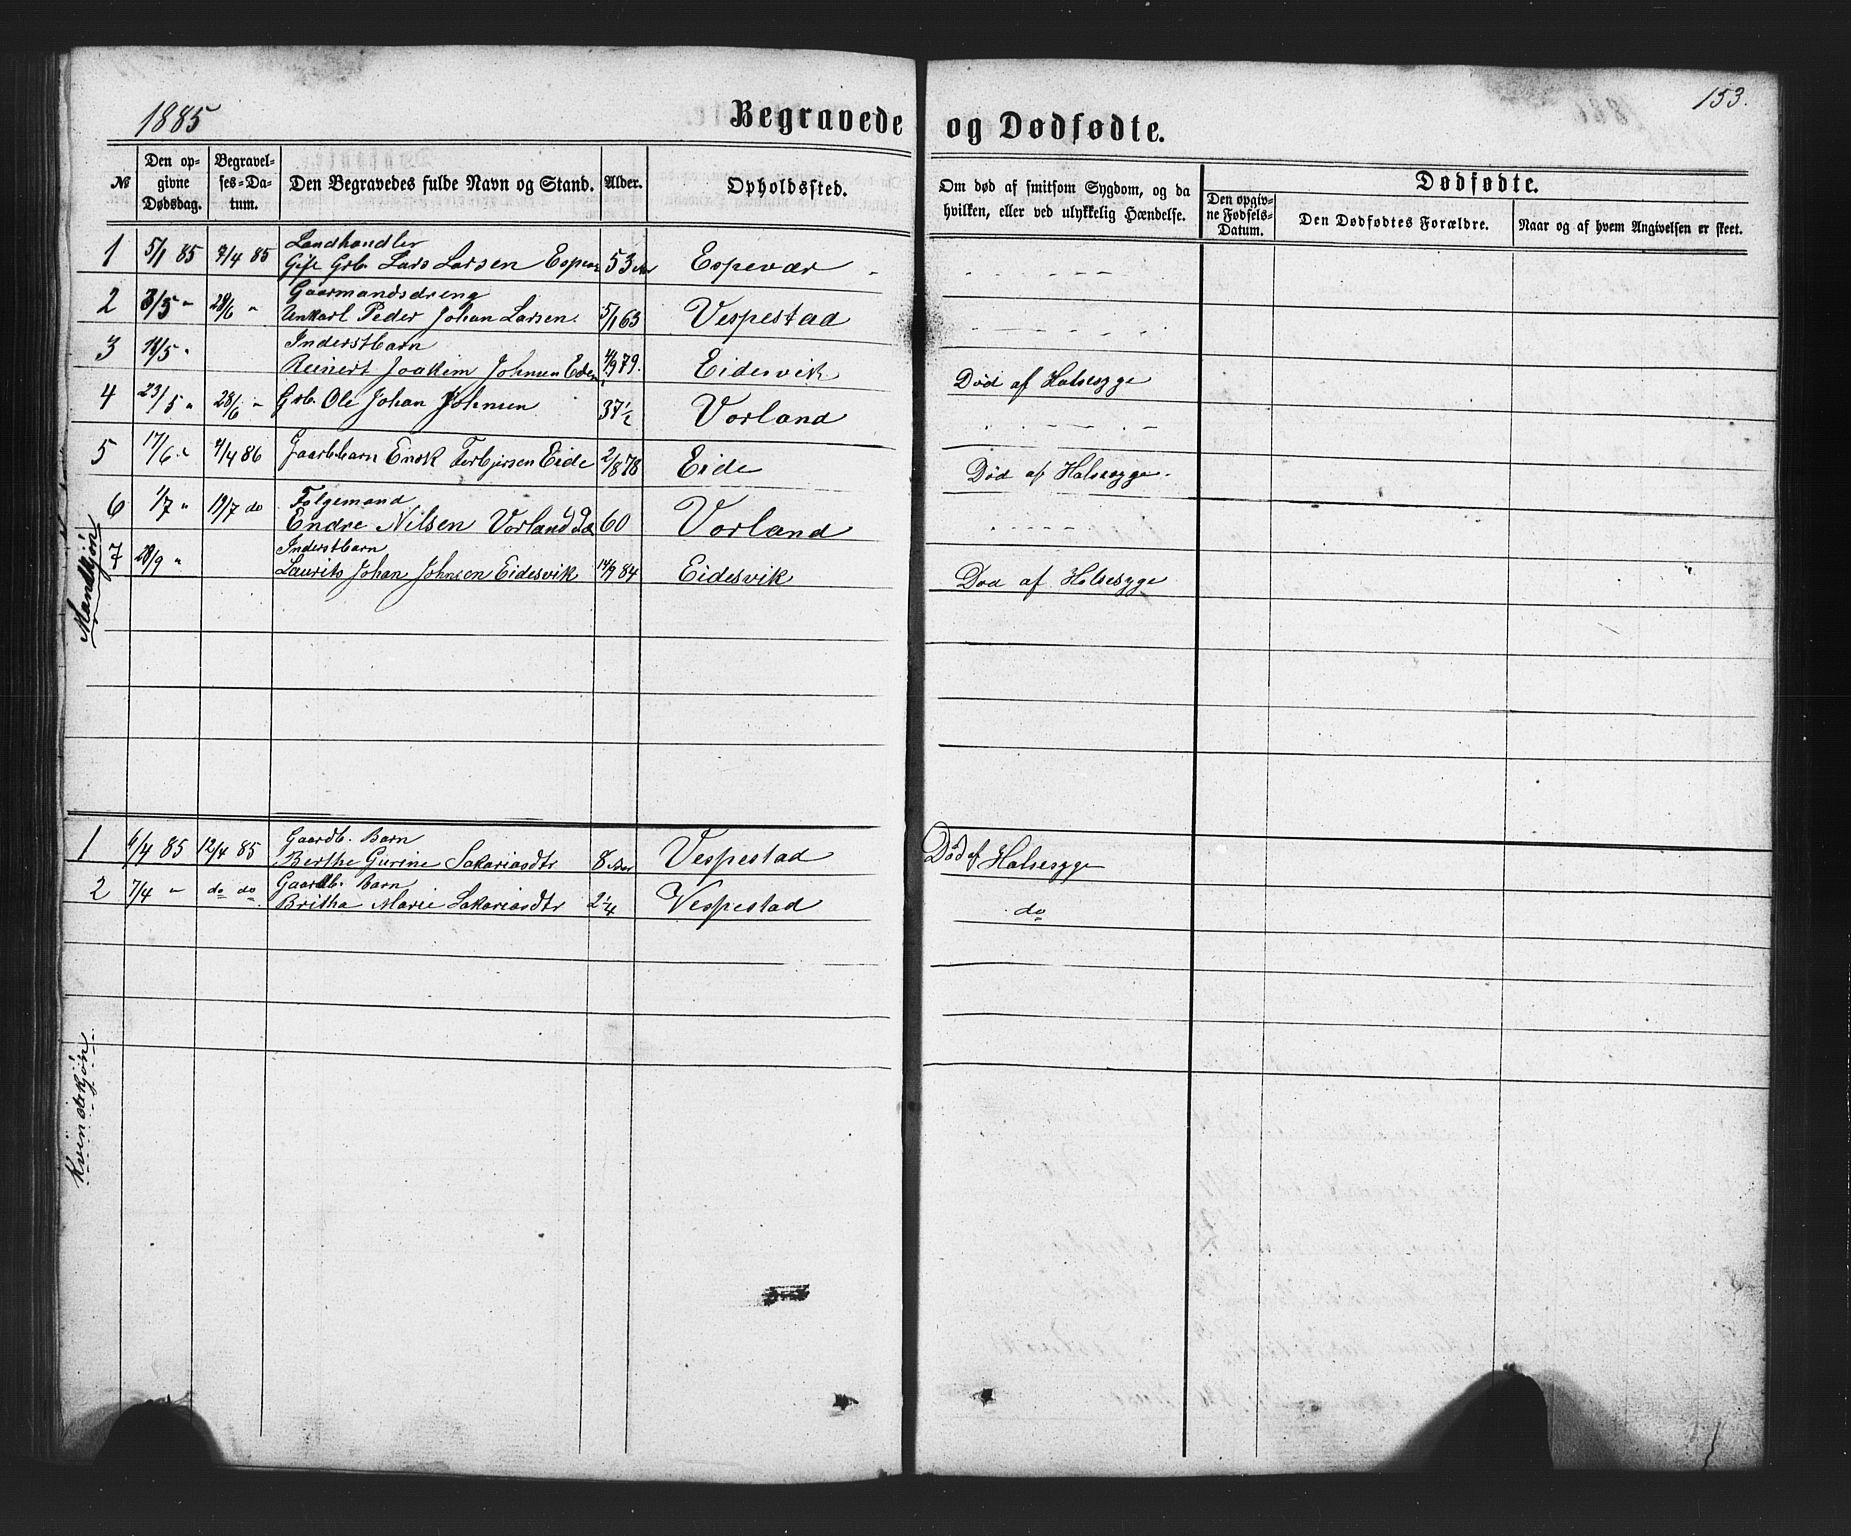 1885 Begravede og Dødfødte. 153.
№ Den opgivne Dødsdag. Begravelses-Datum. Den Begravedes fulde Navn og Stand. Alder. Opholdssted. Om død af smitsom Sygdom, og da hvilken, eller ved ulykkelig Hændelse. Dødfødte. Den opgivne Fødsels-Datum. Den Dødfødtes Forældre. Naar og af hvem Angivelsen er skeet.
Mandkjön
Landhandler
1 5/1 85 7/4 85 Gift Grb. Lars Larsen 53 Espevær
Gaarmandsdreng
2 3/5 " 28/6 " Unkarl Peder Johan Larsen. 5/1 63 Vespestad
Inderstbarn
3 18/5 " Reinert Joakim Johnsen 79. Eidesvik Död af Halsesyge
4 23/5 " 28/6 " Grb. Ole Johan Johnsen 37 1/2 Vorland
5 17/6 " 4/4 86 Gaardbarn Terbjørsen Eide 2/8 78 Eide Död af Halsesyge.
Folgemand
6 1/7 " 19/7 do Endre Nilsen Vorland 60 Vorland
Inderstbarn
7 28/9 " Laurits Johan Johnsen Eidesvik 84 Eidesvik Död af Halsesyge
Kvindekjön
Gaardb. Barn
1 6/4 85 12/4 85 Berthe Gurine Sakariasdtr 8 Aar Vespestad Död af Halsesyge
Gaardb. Barn
2 7/4 " do do Britha Marie Sakariasdtr 2 1/4 Vespestad do